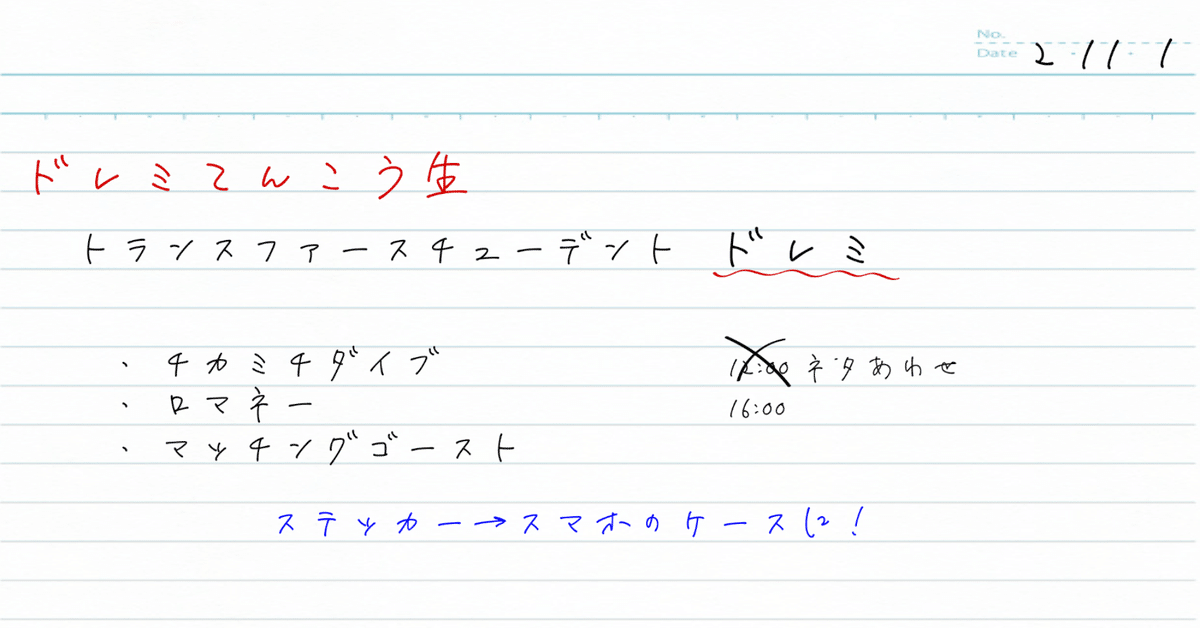 No.
Date 2・11・1
ドレミてんこう生
トランスファースチューデント ドレミ
・チカミチダイブ
12:00 ネタあわせ
・ロマネー
16:00
・マッチングゴースト
ステッカー→スマホのケースに!